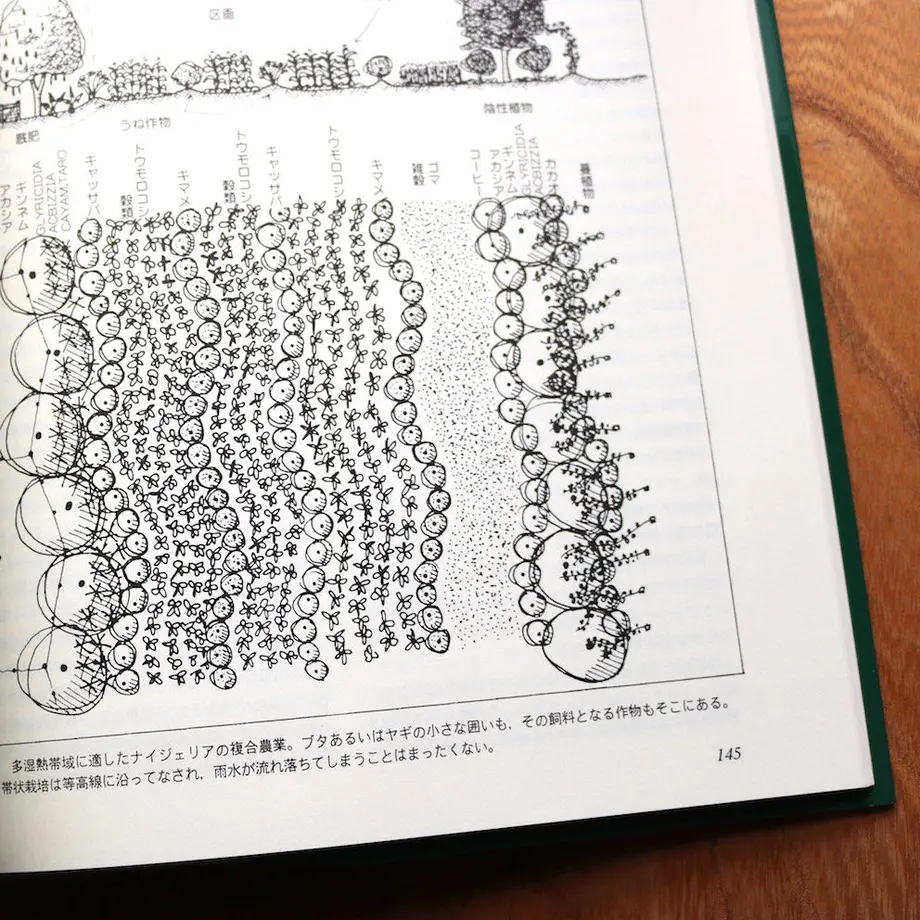 区画
陰性植物
厩肥
うね作物
アカシア
ギンネム
GLYRICIDIA
AOBIZZIA
CAYAM.TARO
キャッサバ
穀類
トウモロコシ
キマメ
穀類
トウモロコシ
キャッサバ
トウモロコシ
キマメ
雑穀
ゴマ
コーヒー
アカシア
ギンネム
GLYRICIDIA
AOBIZZIA
カカオ
蔓植物
多湿熱帯域に適したナイジェリアの複合農業。ブタあるいはヤギの小さな囲いも,その飼料となる作物もそこにある。
帯状栽培は等高線に沿ってなされ,雨水が流れ落ちてしまうことはまったくない。
145